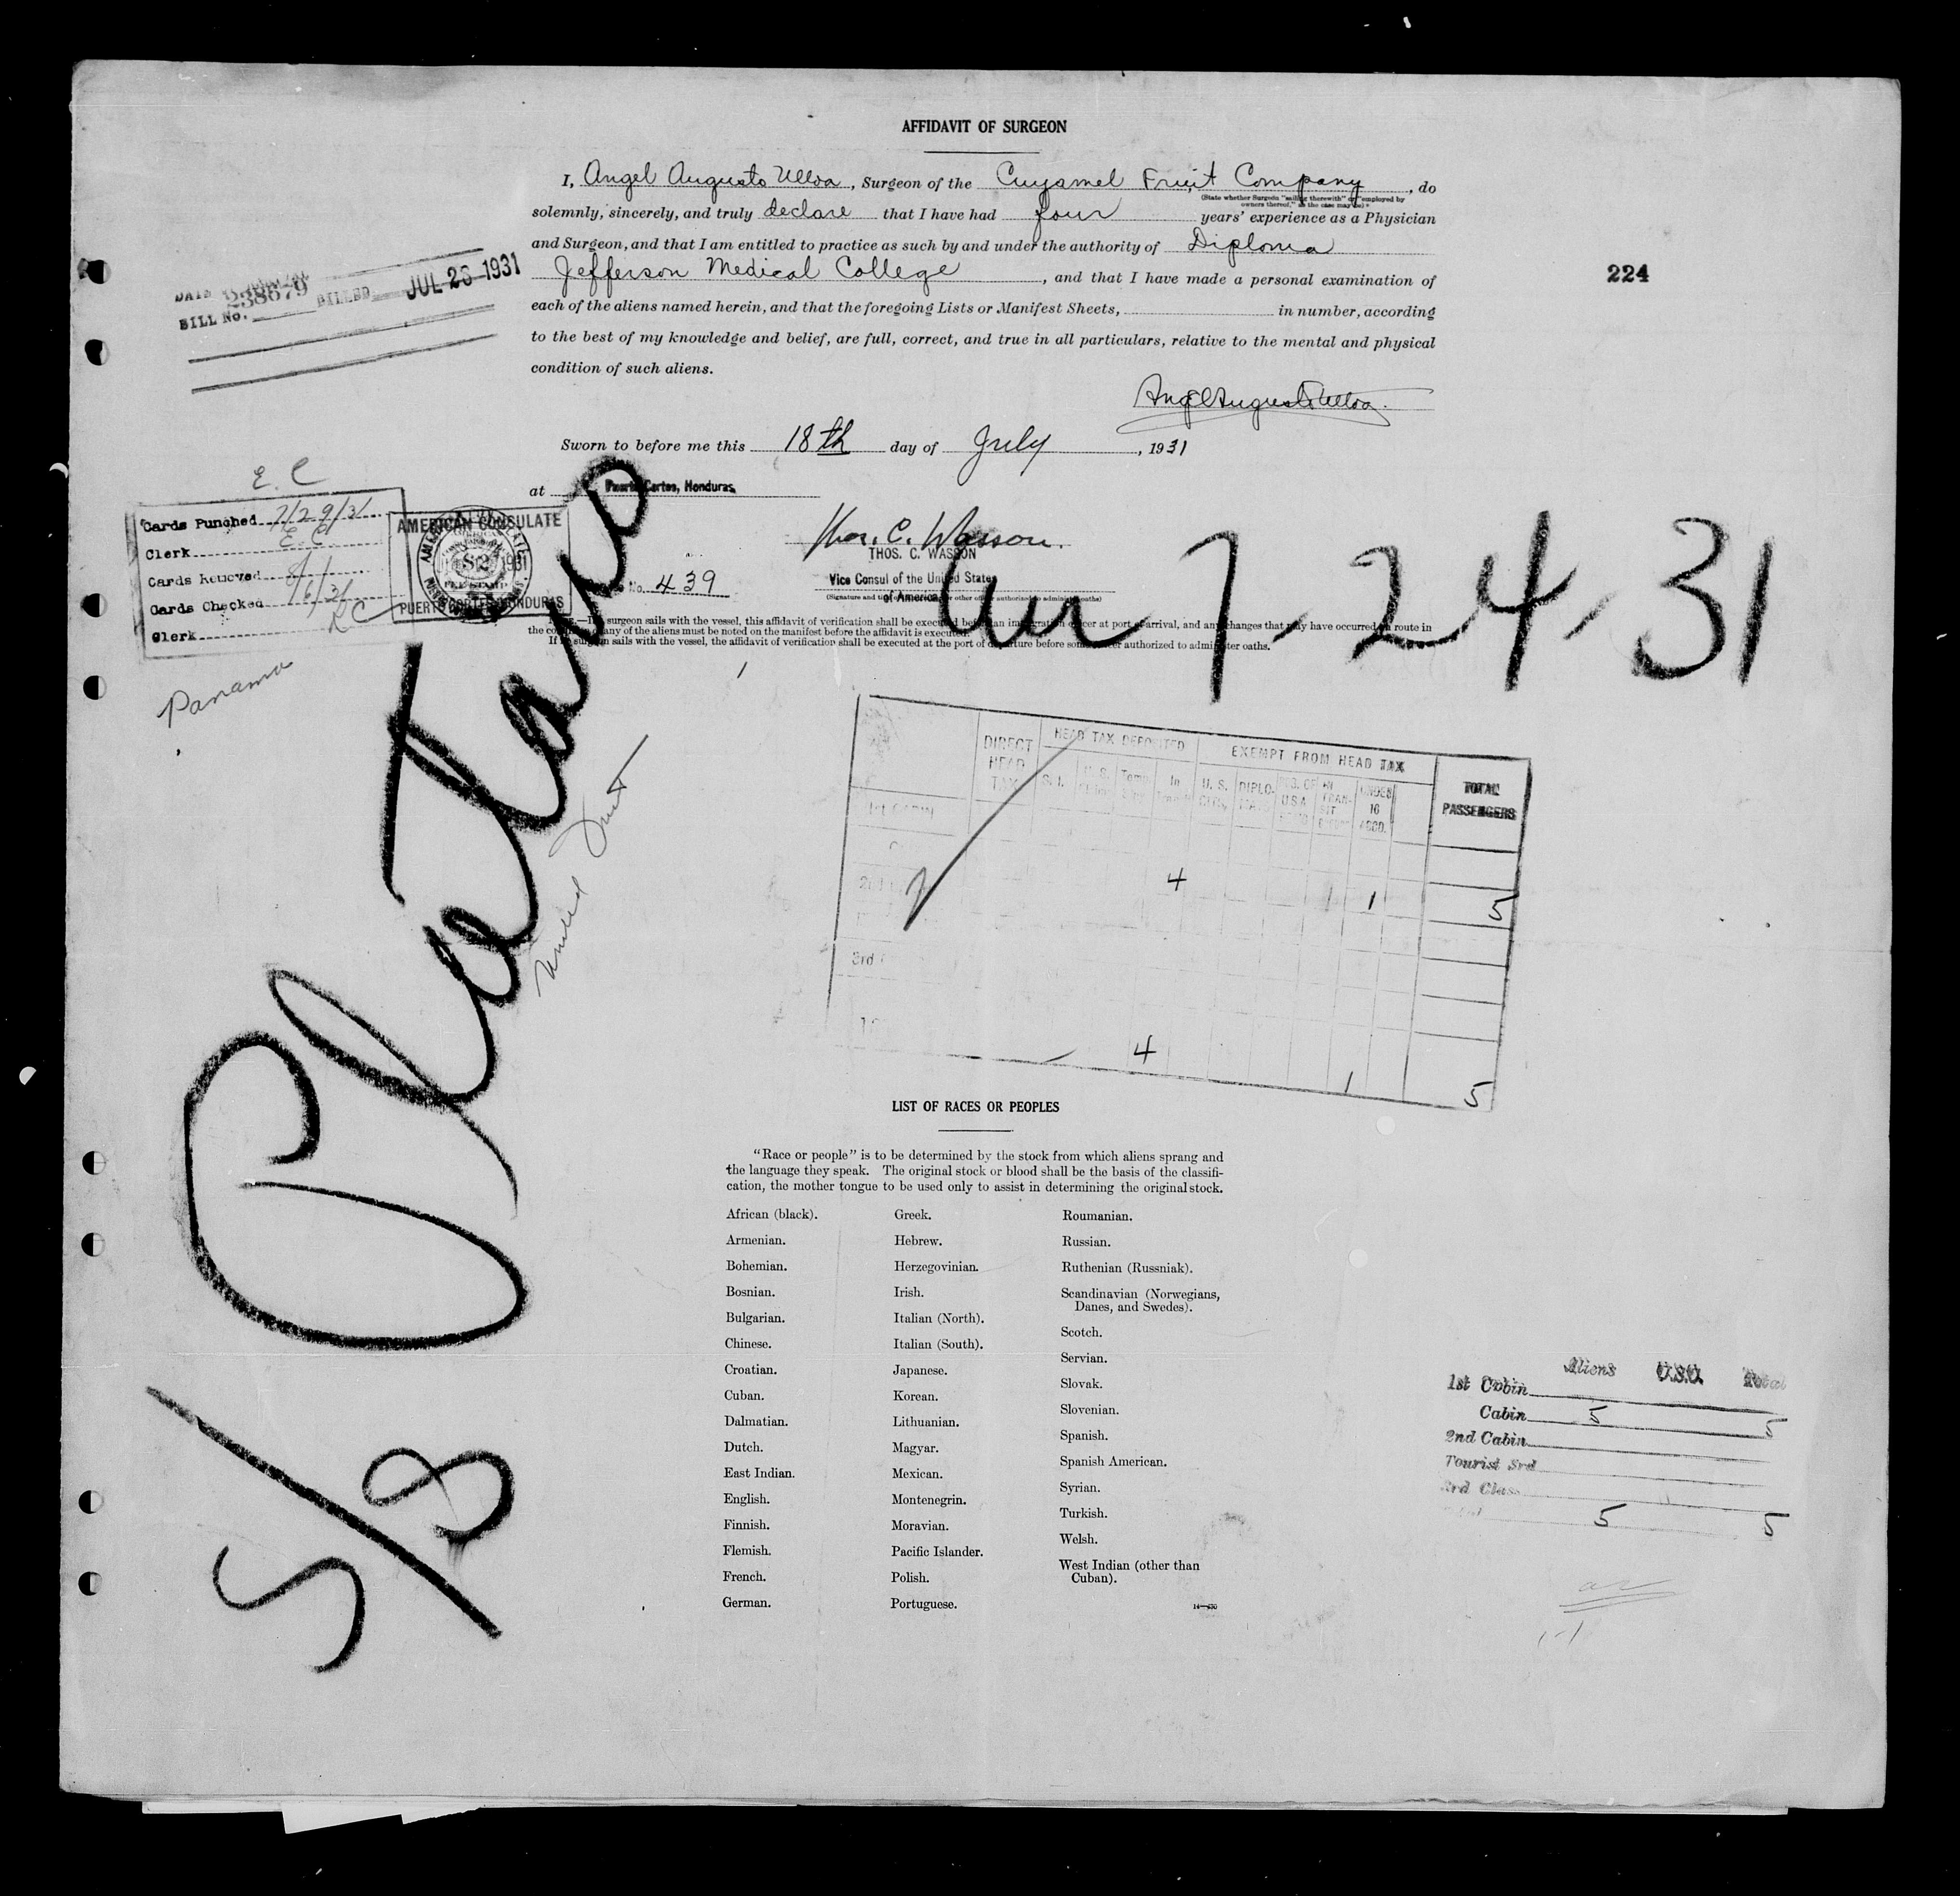 AFFIDAVIT OF SURGEON
I, Angel Augusto Ulloa, Surgeon of the Cuyamel Fruit Company, do
(State whether Surgeon "sailing therewith" or "employed by
owners thereof," as the case may be)
solemnly, sincerely, and truly declare that I have had four years' experience as a Physician
and Surgeon, and that I am entitled to practice as such by and under the authority of Diploma
Jefferson Medical College, and that I have made a personal examination of
each of the aliens named herein, and that the foregoing Lists or Manifest Sheets, in number, according
to the best of my knowledge and belief, are full, correct, and true in all particulars, relative to the mental and physical
condition of such aliens.
224
BILL No. 238679 BILLED JUL 26 1931
Angel Augusto Ulloa
Sworn to before me this 18th day of July, 1931
at Puerto Cortes, Honduras
Thos. C. Wasson.
THOS. C. WASSON
Vice Consul of the United States
of America
E. C
Cards Punched 7/29/31
Clerk E. C.
Cards Removed
Cards Checked
Clerk
AMERICAN CONSULATE
PUERTO CORTES, HONDURAS
No. 439
Arr 7-24-31
surgeon sails with the vessel, this affidavit of verification shall be executed before an immigration officer at port of arrival, and any changes that may have occurred en route in
the condition of any of the aliens must be noted on the manifest before the affidavit is executed.
If surgeon sails with the vessel, the affidavit of verification shall be executed at the port of departure before some officer authorized to administer oaths.
Panama
Platano
United Fruit
S/8
DIRECT HEAD TAX
HEAD TAX DEPOSITED
EXEMPT FROM HEAD TAX
TOTAL PASSENGERS
4 1 5
3rd
4 1 5
LIST OF RACES OR PEOPLES
"Race or people" is to be determined by the stock from which aliens sprang and
the language they speak. The original stock or blood shall be the basis of the classifi-
cation, the mother tongue to be used only to assist in determining the original stock.
African (black).
Armenian.
Bohemian.
Bosnian.
Bulgarian.
Chinese.
Croatian.
Cuban.
Dalmatian.
Dutch.
East Indian.
English.
Finnish.
Flemish.
French.
German.
Greek.
Hebrew.
Herzegovinian.
Irish.
Italian (North).
Italian (South).
Japanese.
Korean.
Lithuanian.
Magyar.
Mexican.
Montenegrin.
Moravian.
Pacific Islander.
Polish.
Portuguese.
Roumanian.
Russian.
Ruthenian (Russniak).
Scandinavian (Norwegians,
Danes, and Swedes).
Scotch.
Servian.
Slovak.
Slovenian.
Spanish.
Spanish American.
Syrian.
Turkish.
Welsh.
West Indian (other than
Cuban).
Aliens U.S.C. Total
1st Cabin
Cabin 5 5
2nd Cabin
Tourist 3rd
3rd Class
5 5